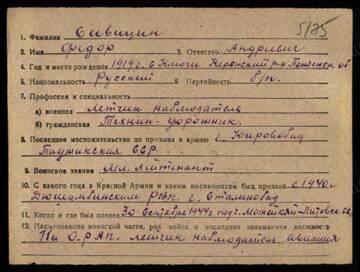 5/75
1. Фамилия Савицин
2. Имя Федор 3. Отчество Андреевич
4. Год и место рождения 1919 г. с. Ключи Керенский р-н Пензенск. об
5. Национальность Русский 6. Партийность б/п.
7. Профессия и специальность
а) военная летчик наблюдатель
б) гражданская Техник-дорожник.
8. Последнее местожительство до призыва в армию г. Кировобад
Таджикская ССР.
9. Воинское звание Мл. Лейтенант
10. С какого года в Красной Армии и каким военкоматом был призван с 1940 г.
Дюшамбинским РВК. г. Сталинабад
11. Когда и где был пленен 30 Сентября 1944 г. под г. Литовск
12. Наименование воинской части, род войск и последняя занимаемая должность
О.РАП. летчик наблюдатель, авиация